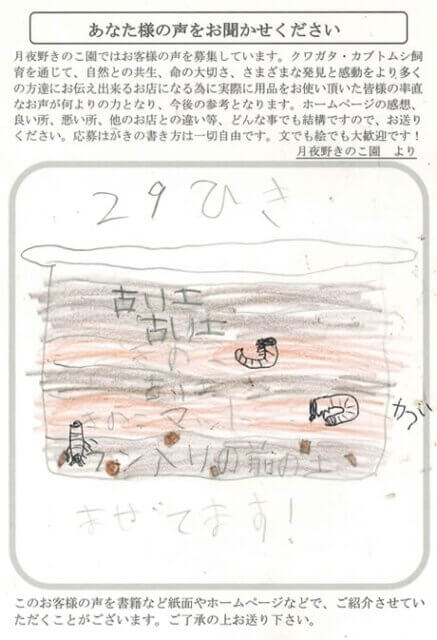 あなた様の声をお聞かせください
月夜野きのこ園ではお客様の声を募集しています。クワガタ・カブトムシ飼
育を通じて、自然との共生、命の大切さ、さまざまな発見と感動をより多く
の方達にお伝え出来るお店になる為に実際に用品をお使い頂いた皆様の率直
なお声が何よりの力となり、今後の参考となります。ホームページの感想、
良い所、悪い所、他のお店との違い等、どんな事でも結構ですので、お送り
ください。応募はがきの書き方は一切自由です。文でも絵でも大歓迎です！
月夜野きのこ園 より
29ひき
古い土
古い土
きのこマット
フン入りの前の土
まぜてます！
このお客様の声を書籍など紙面やホームページなどで、ご紹介させていた
だくことがございます。ご了承の上お送り下さい。